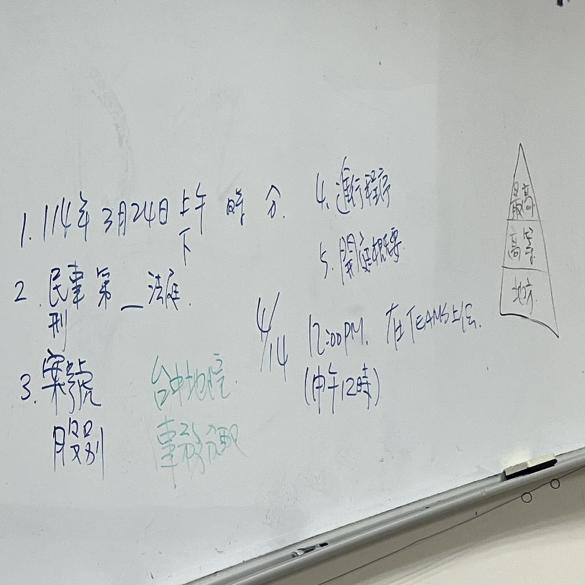 1. 114年 3月24日 上午 時 分.
下
2. 民事 第_法庭.
刑
3. 案號
股別
台中地院
4. 進行程序
5. 開庭概要.
4/14 12:00PM. 在TEAMS上
(中午12時)
最高
高等
地方